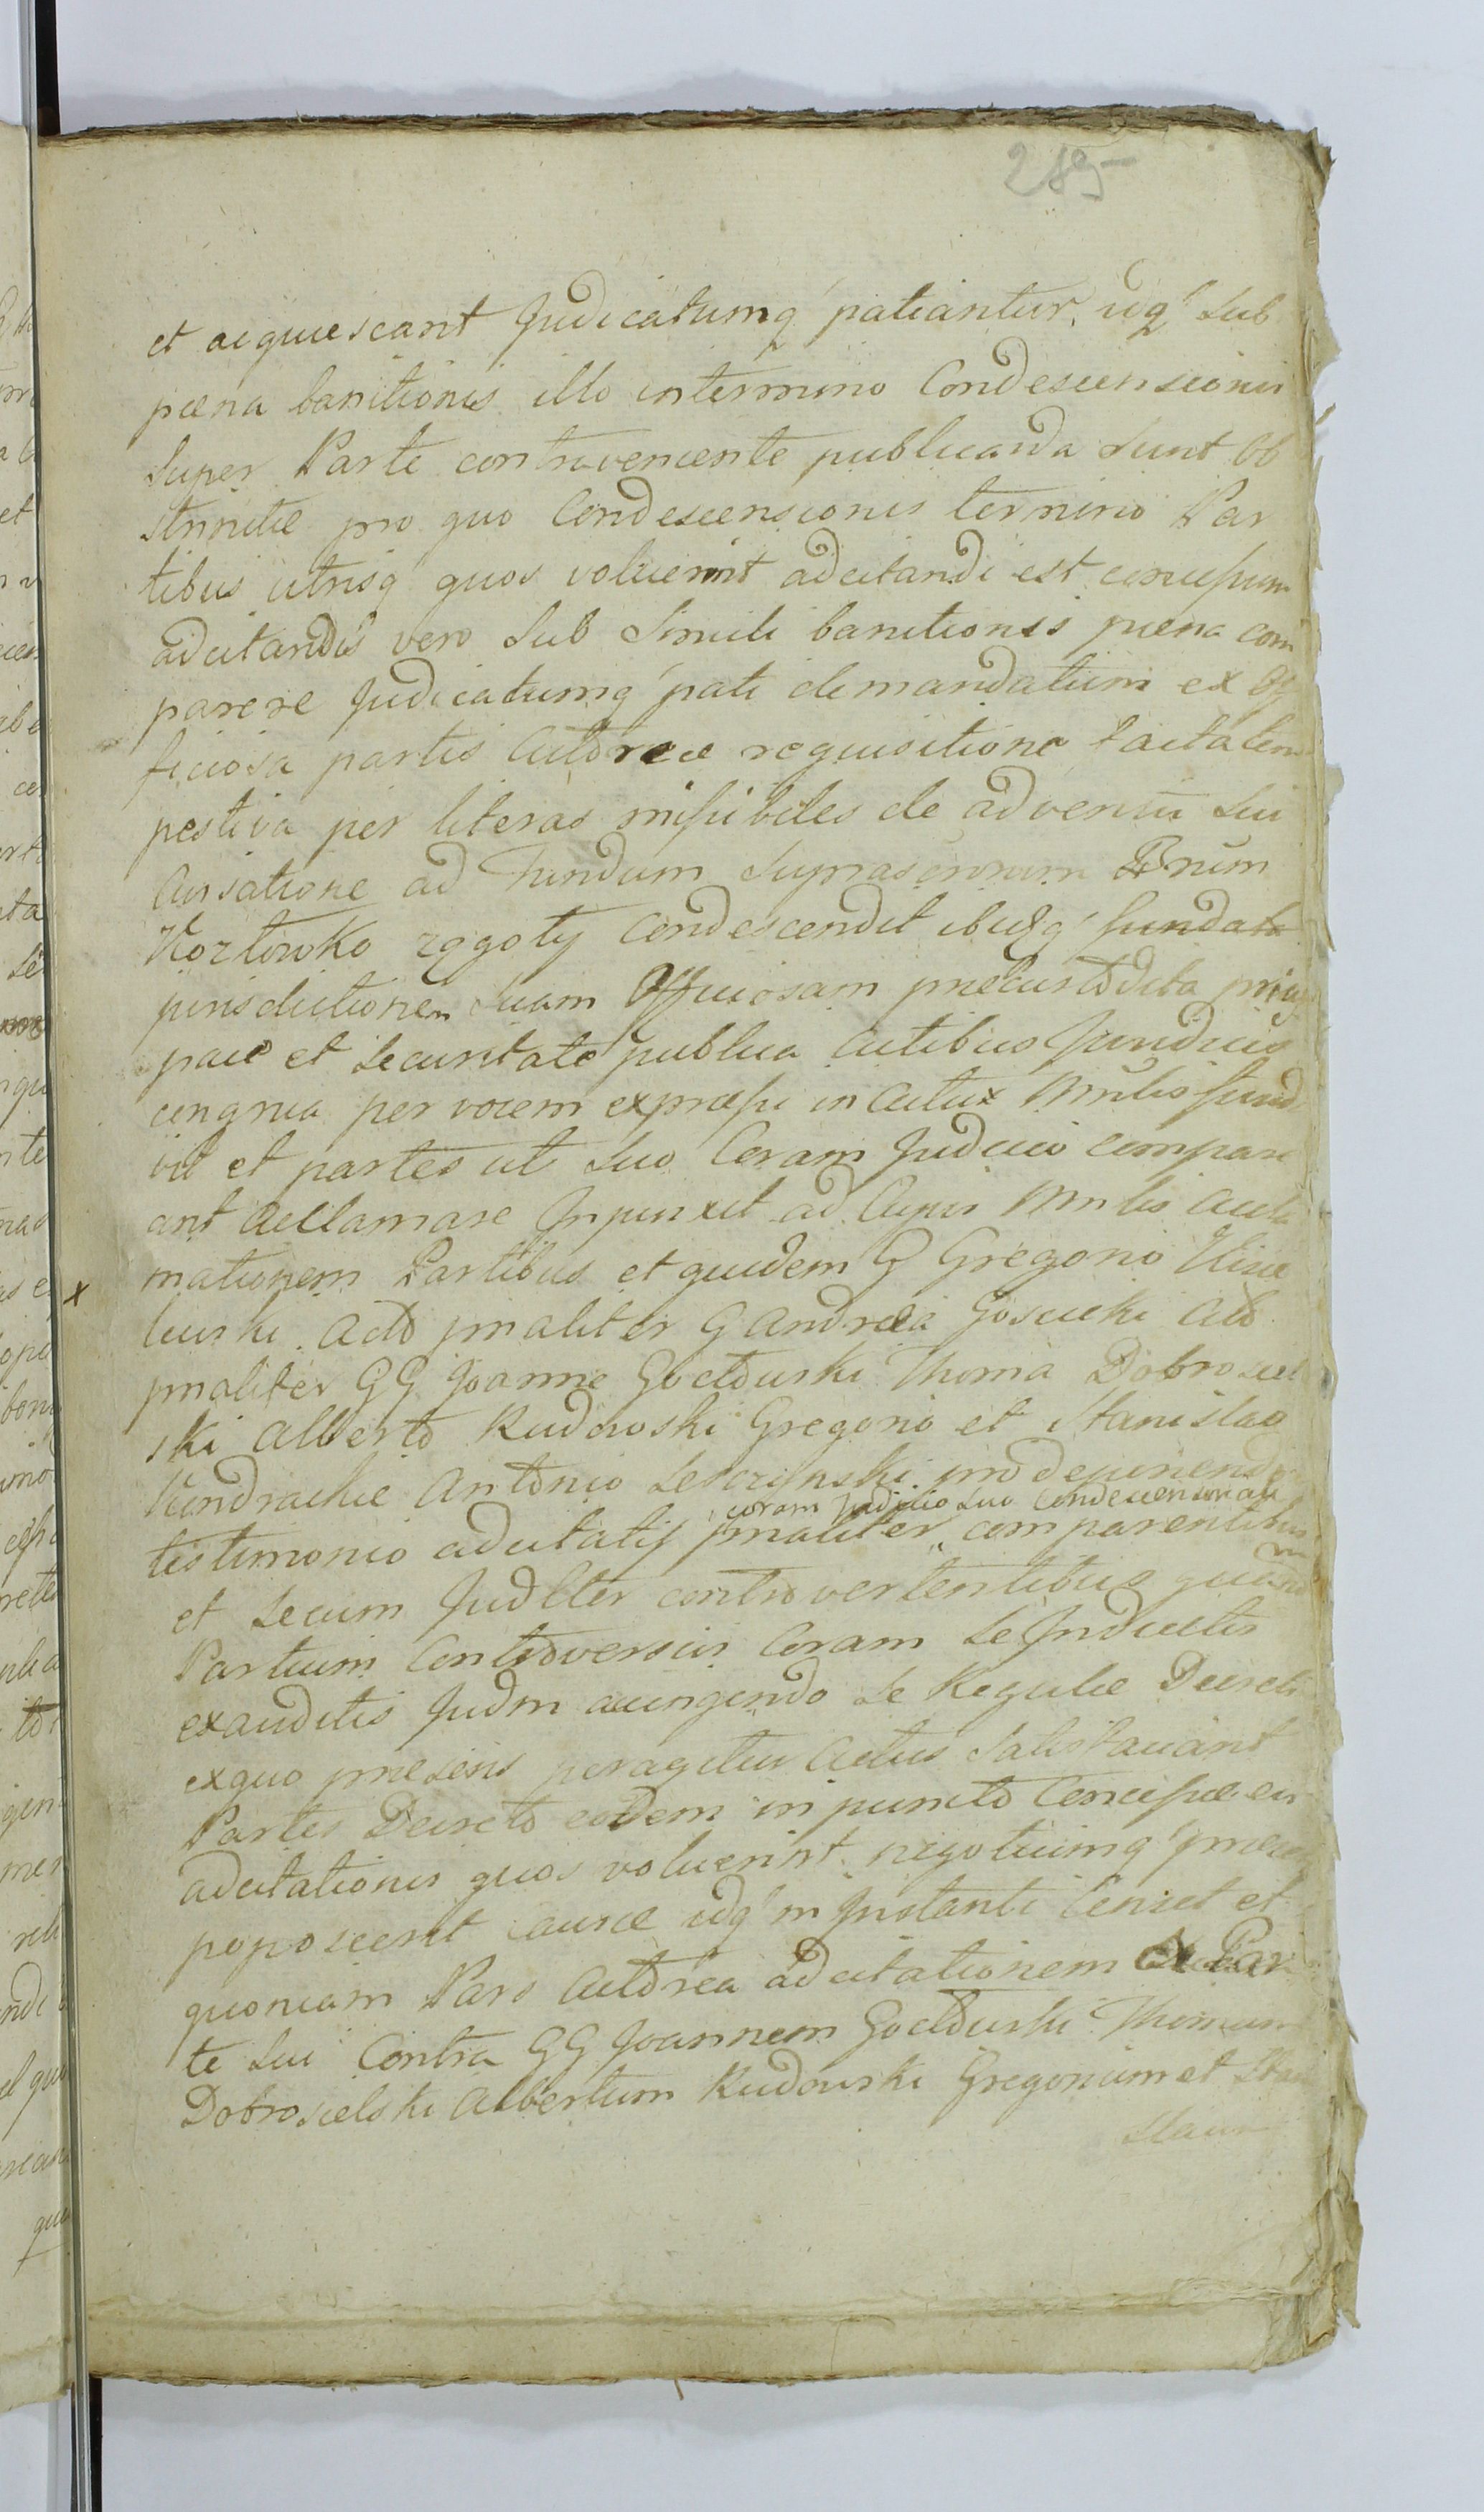 289
et acquiescant Judicatumq patiantur, idq sub
pœna banitionis illo in termino Condescensionis
super Parte contraveniente publicanda sunt Ob
strictæ pro quo Condescensionis termino Par
tibus utrisq quos voluerint adcitandi est concessum
adcitandis vero sub simili banitionis pœna com
parere Judicatumq pati demandatum ex Of
ficiosa partis Actoreæ requisitione facta tem
pestiva per literas missibiles de adventu sui
avisatione ad fundum suprascriptum Bnrum
Kozłowko zggoty Condescendit ibidq fundata
jurisdictionem suam Officiosam præcustodita prius
pace et securitate publica actibus Juridicis
congrua per vocem expressi in actu Mnlis fund
vit et partes ut suo Coram Judicio compare
ant acclamare Injunxit ad Cujus Mnlis accla
mationem Partibus et quidem G Gregorio
Acto pnaliter G Andrea Gosucki Cito
pnaliter GG Joanne Goclduski Thoma Dobrosiel
ski Alberto Rudowski Gregorio et Stanislao
Kundrackie Antonio pro deponendo
testimonio adcitatis pnaliter comparentibus
coram Judicio suo Condescensorali
et secum Judlter controvertentibus quarum
Partium Controversiis Coram se Inductis
exauditis Judm accingendo se Regulæ Decreti
ex quo præsens peragitur Actus satisfaciant
Partes Decreto eodem in puncto Concessæ eis
adcitationis quos voluerint negotiumq
poposcerit causæ idq in Instanti Censet et
quoniam Pars Actorea adcitationem ex Par
te sui Contra GG Joannem Goclduski Thomam
Dobrosielski Albertum Rudowski Gregorium et Stani
slaum